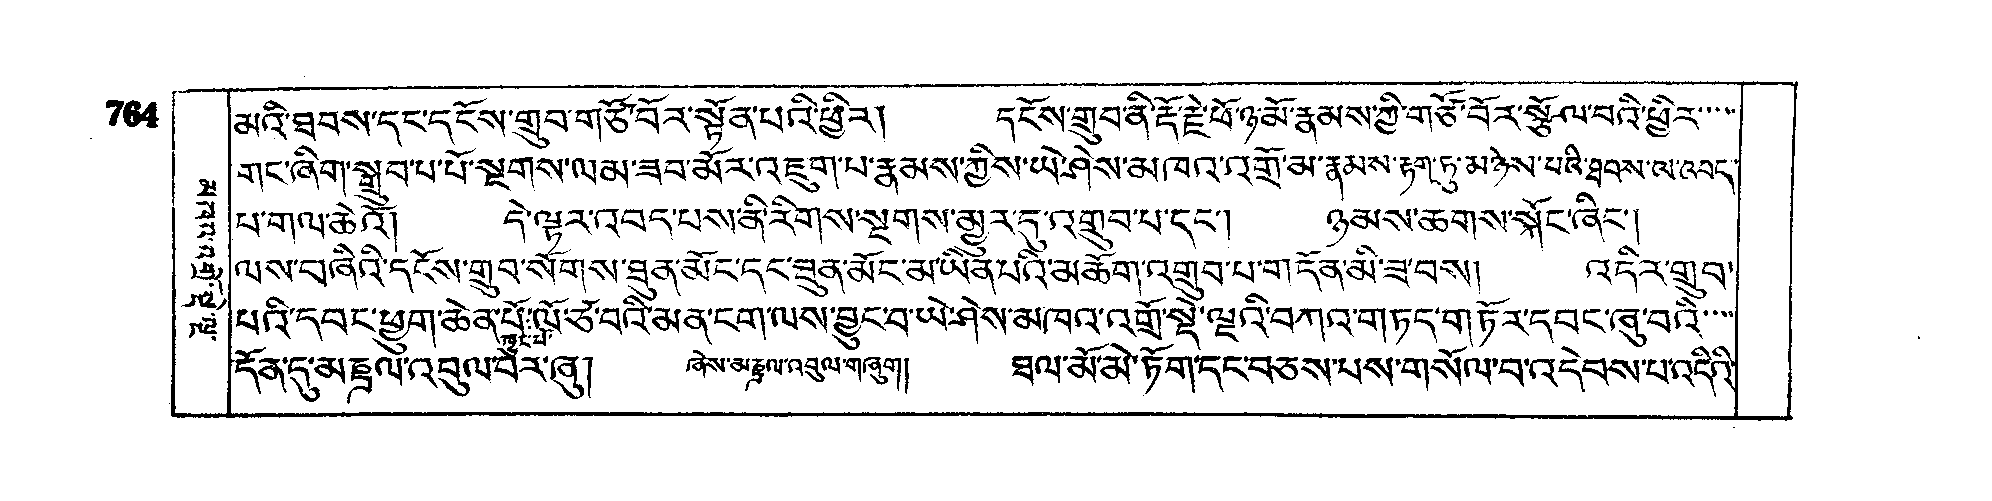 764
མཁའ་འགྲོ་སྡེ་ལྔ་
མའི་ཐབས་དང་དངོས་གྲུབ་གཙོ་བོར་སྟོན་པའི་ཕྱིར། དངོས་གྲུབ་ནི་རྡོ་རྗེ་ཕོ་ཉ་མོ་རྣམས་ཀྱི་གཙོ་བོར་སྩོལ་བའི་ཕྱིར་....
གང་ཞིག་སྒྲུབ་པ་པོ་སྔགས་ལམ་ཟབ་མོར་འཇུག་པ་རྣམས་ཀྱིས་ཡེ་ཤེས་མཁའ་འགྲོ་མ་རྣམས་རྟག་ཏུ་མཉེས་པའི་ཐབས་ལ་འབད་
པ་གལ་ཆེའོ། དེ་ལྟར་འབད་པས་ནི་རིགས་སྔགས་མྱུར་དུ་འགྲུབ་པ་དང་། ཉམས་ཆགས་སྐོང་ཞིང་།
ལས་བཞིའི་དངོས་གྲུབ་སོགས་ཐུན་མོང་དང་ཐུན་མོང་མ་ཡིན་པའི་མཆོག་འགྲུབ་པ་ག་དོན་མི་ཟ་བས། འདིར་གྲུབ་
པའི་དབང་ཕྱུག་ཆེན་པོ་ལོ་ཙཱ་བའི་མན་ངག་ལས་བྱུང་བ་ཡེ་ཤེས་མཁའ་འགྲོ་སྡེ་ལྔའི་བཀའ་གཏད་གཏོར་དབང་ཞུ་བའི་....
ཁྱུང་པོ་
དོན་དུ་མཎྜལ་འབུལ་བོར་ཞུ། ཞེས་མཎྜལ་འབུལ་གཞུག། ཐལ་མོ་མེ་ཏོག་དང་བཅས་པས་གསོལ་བ་འདེབས་པ་འདིའི་